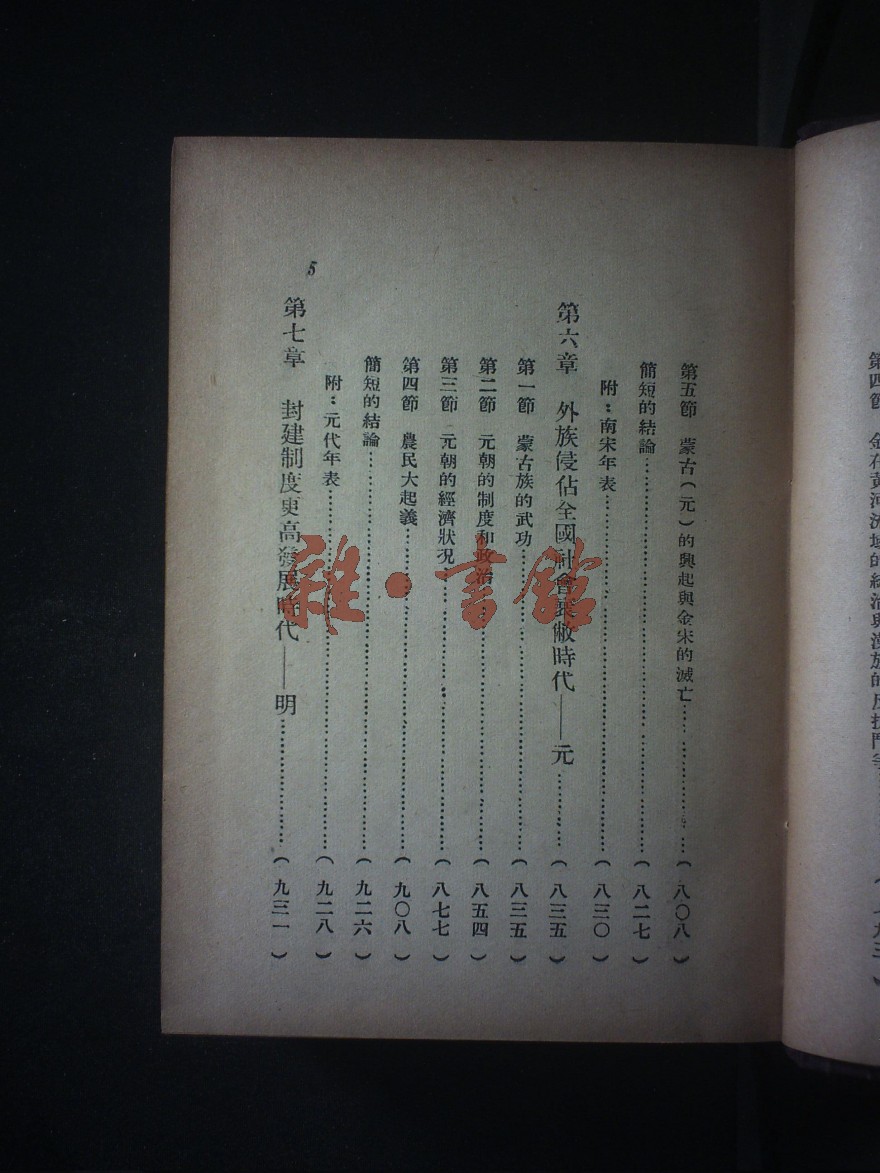 第四節　金在黃河流域的統治與漢族的反抗鬥爭
第五節　蒙古(元)的興起與金宋的滅亡……………(八〇八)
簡短的結論……………(八二七)
附：南宋年表……………(八三〇)
第六章　外族侵佔全國社會衰敝時代——元……………(八三五)
第一節　蒙古族的武功……………(八三五)
第二節　元朝的制度和政治……………(八五四)
第三節　元朝的經濟狀況……………(八七七)
第四節　農民大起義……………(九〇八)
簡短的結論……………(九二六)
附：元代年表……………(九二八)
第七章　封建制度更高發展時代——明……………(九三一)
5
雜·書館